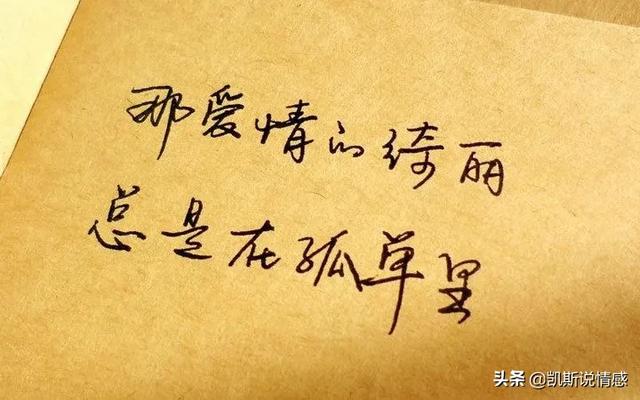 那爱情的绮丽
总是在孤单里
头条 @凯斯说情感